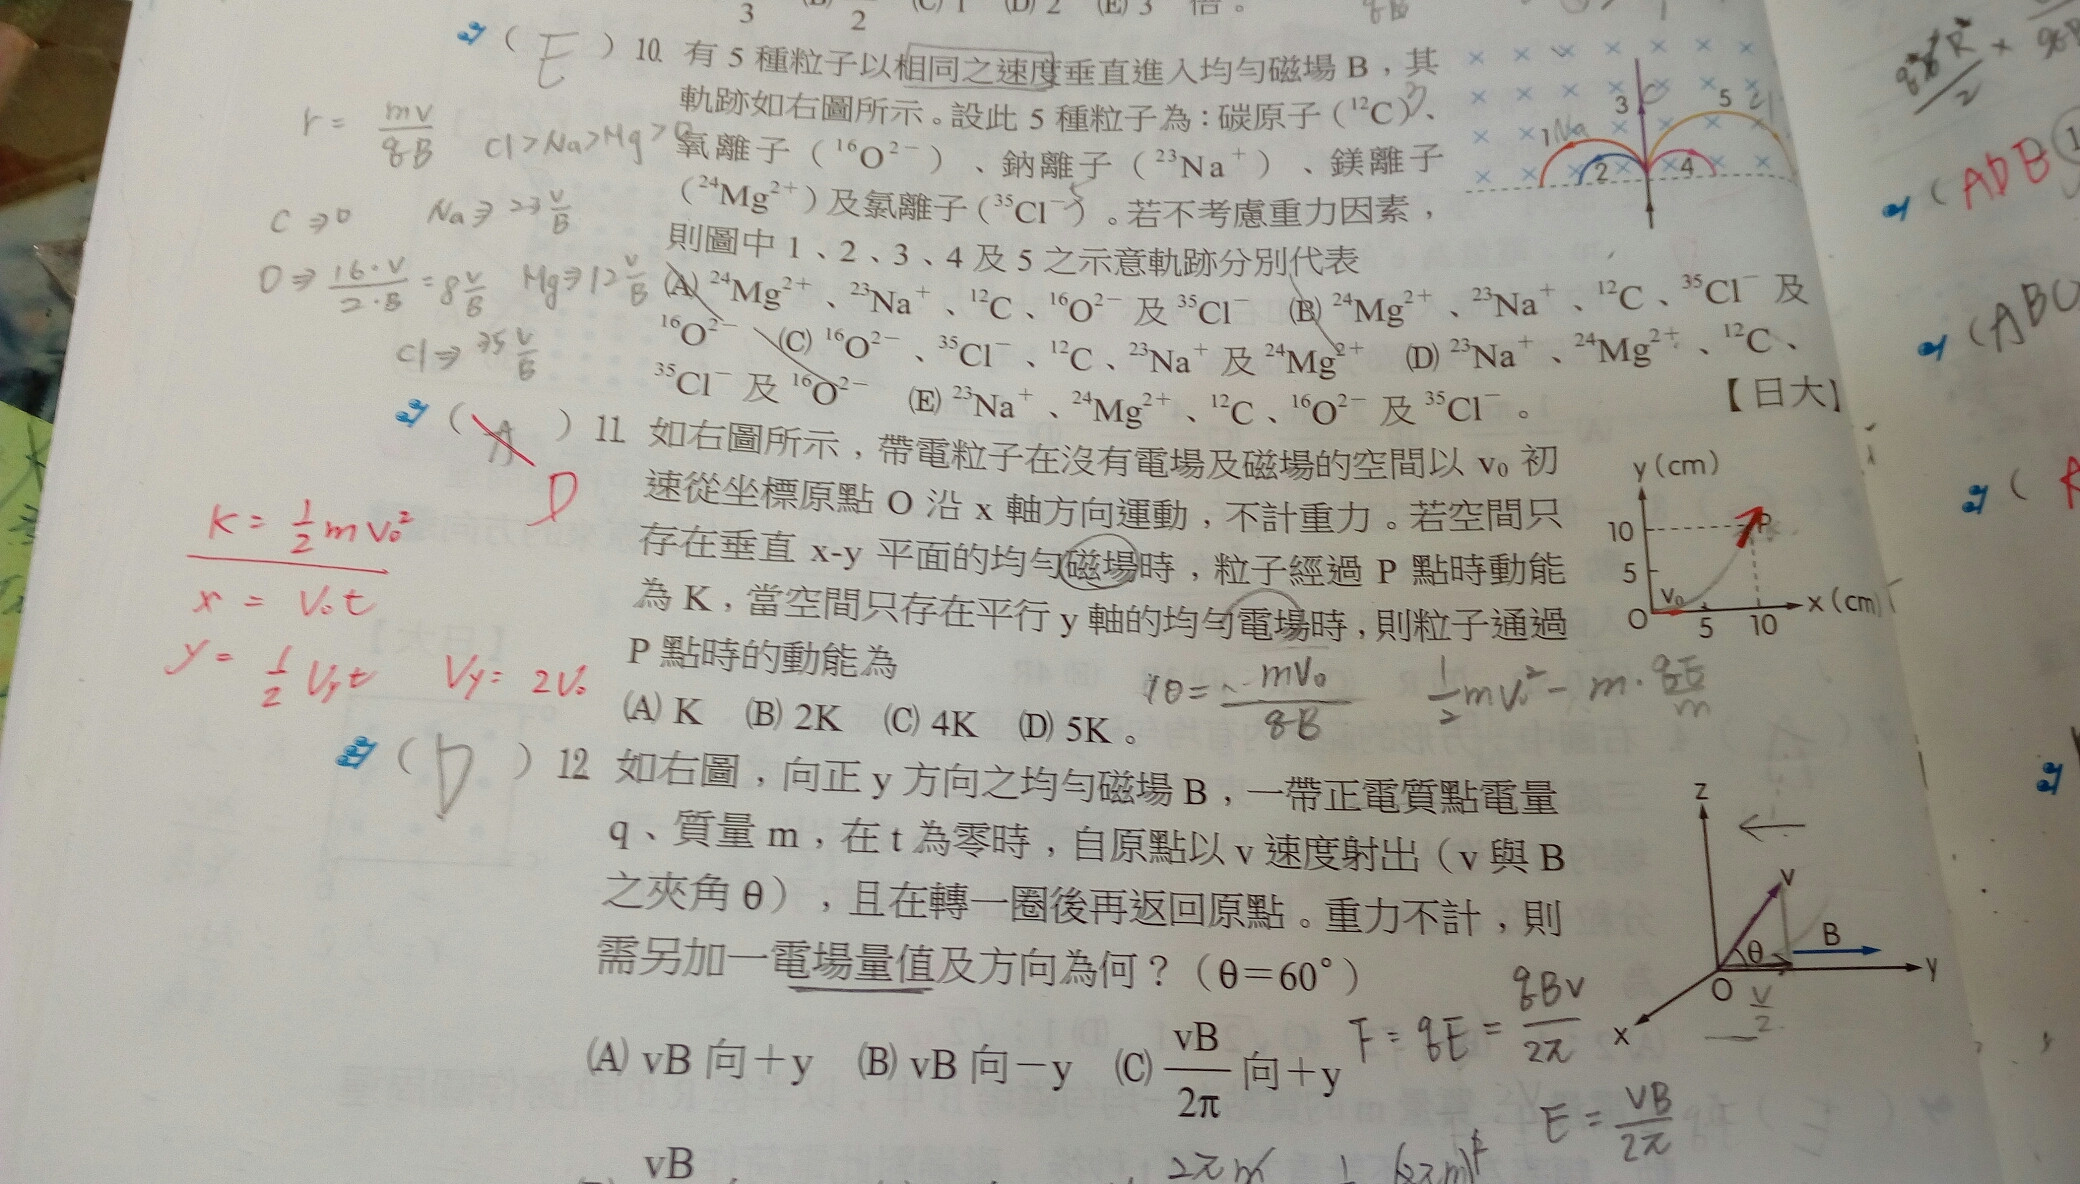 3
2
(C) 1 (D) 2 (E) 3 倍。
( E ) 10. 有 5 種粒子以相同之速度垂直進入均勻磁場 B,其
軌跡如右圖所示。設此 5 種粒子為:碳原子(¹²C)、
氧離子(¹⁶O²⁻)、鈉離子(²³Na⁺)、鎂離子
(²⁴Mg²⁺)及氯離子(³⁵Cl⁻)。若不考慮重力因素,
則圖中 1、2、3、4 及 5 之示意軌跡分別代表
(A) ²⁴Mg²⁺、²³Na⁺、¹²C、¹⁶O²⁻ 及 ³⁵Cl⁻ (B) ²⁴Mg²⁺、²³Na⁺、¹²C、³⁵Cl⁻ 及
¹⁶O²⁻ (C) ¹⁶O²⁻、³⁵Cl⁻、¹²C、²³Na⁺ 及 ²⁴Mg²⁺ (D) ²³Na⁺、²⁴Mg²⁺、¹²C、
³⁵Cl⁻ 及 ¹⁶O²⁻ (E) ²³Na⁺、²⁴Mg²⁺、¹²C、¹⁶O²⁻ 及 ³⁵Cl⁻。
【日大】
r = mv/qB
Cl>Na>Mg>O
C⇒0 Na⇒23 v/B
O⇒ 16·v/2·B = 8 v/B Mg⇒12 v/B
Cl⇒35 v/B
1 Na
2
3 C
4
5 Cl
( A ) 11. 如右圖所示,帶電粒子在沒有電場及磁場的空間以 v₀ 初
D
速從坐標原點 O 沿 x 軸方向運動,不計重力。若空間只
存在垂直 x-y 平面的均勻磁場時,粒子經過 P 點時動能
為 K,當空間只存在平行 y 軸的均勻電場時,則粒子通過
P 點時的動能為
(A) K (B) 2K (C) 4K (D) 5K。
K = ½mv₀²
x = v₀t
y = ½Vyt Vy = 2V₀
10 = mv₀/qB
½mv₀² - m·qE/m
y(cm)
10
P
5
v₀
O 5 10 x(cm)
( D ) 12. 如右圖,向正 y 方向之均勻磁場 B,一帶正電質點電量
q、質量 m,在 t 為零時,自原點以 v 速度射出(v 與 B
之夾角 θ),且在轉一圈後再返回原點。重力不計,則
需另加一電場量值及方向為何?(θ=60°)
(A) vB 向+y (B) vB 向-y (C) vB/2π 向+y
vB
z
v
B
θ
O
y
x
v/2
F = qE = qBv/2π
E = vB/2π
(ADB
(ABC